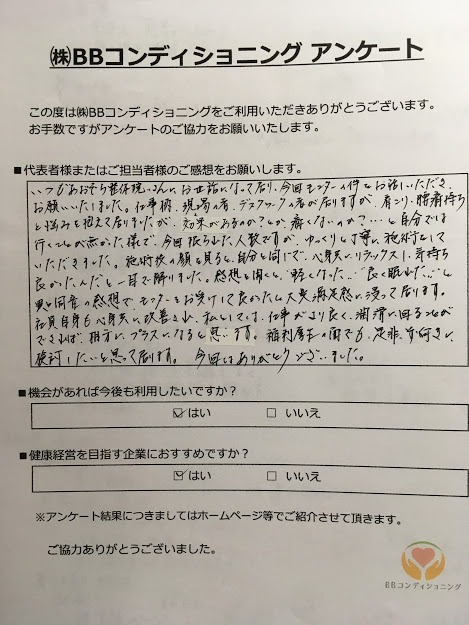 ㈱BBコンディショニング アンケート
この度は㈱BBコンディショニングをご利用いただきありがとうございます。
お手数ですがアンケートのご協力をお願いいたします。
■代表者様またはご担当者様のご感想をお願いします。
いつもあおぞら整体院さんにお世話になって居り、今回モニターの件をお話しいただき、
お願いいたしました。仕事柄、現場の者、デスクワークの者が居りますが、肩こり、腰痛持ち
と悩みを抱えて居りましたが、効果があるのか?とか、痛くないのか?…と自分では
行くことが無かった様で、今回限られた人数ですが、ゆっくりと丁寧に施術をして
いただきました。施術後の顔を見ると、自分と同じで、心身共にリラックスし、気持ち
良かったんだと一目で解りました。感想を聞くと、"軽くなった…""良く眠れた…"と
異口同音の感想で、モニターをお受けして良かったと大変満足感に浸って居ります。
社員自身も心身共に改善され、私としては、仕事がより良く、潤滑に回ることが
できれば、相方にプラスになると思います。福利厚生の面でも、是非、前向きに
検討したいと思って居ります。 今回はありがとうございました。
■機会があれば今後も利用したいですか?
☑はい □いいえ
■健康経営を目指す企業におすすめですか?
☑はい □いいえ
※アンケート結果につきましてはホームページ等でご紹介させて頂きます。
ご協力ありがとうございました。
BBコンディショニング